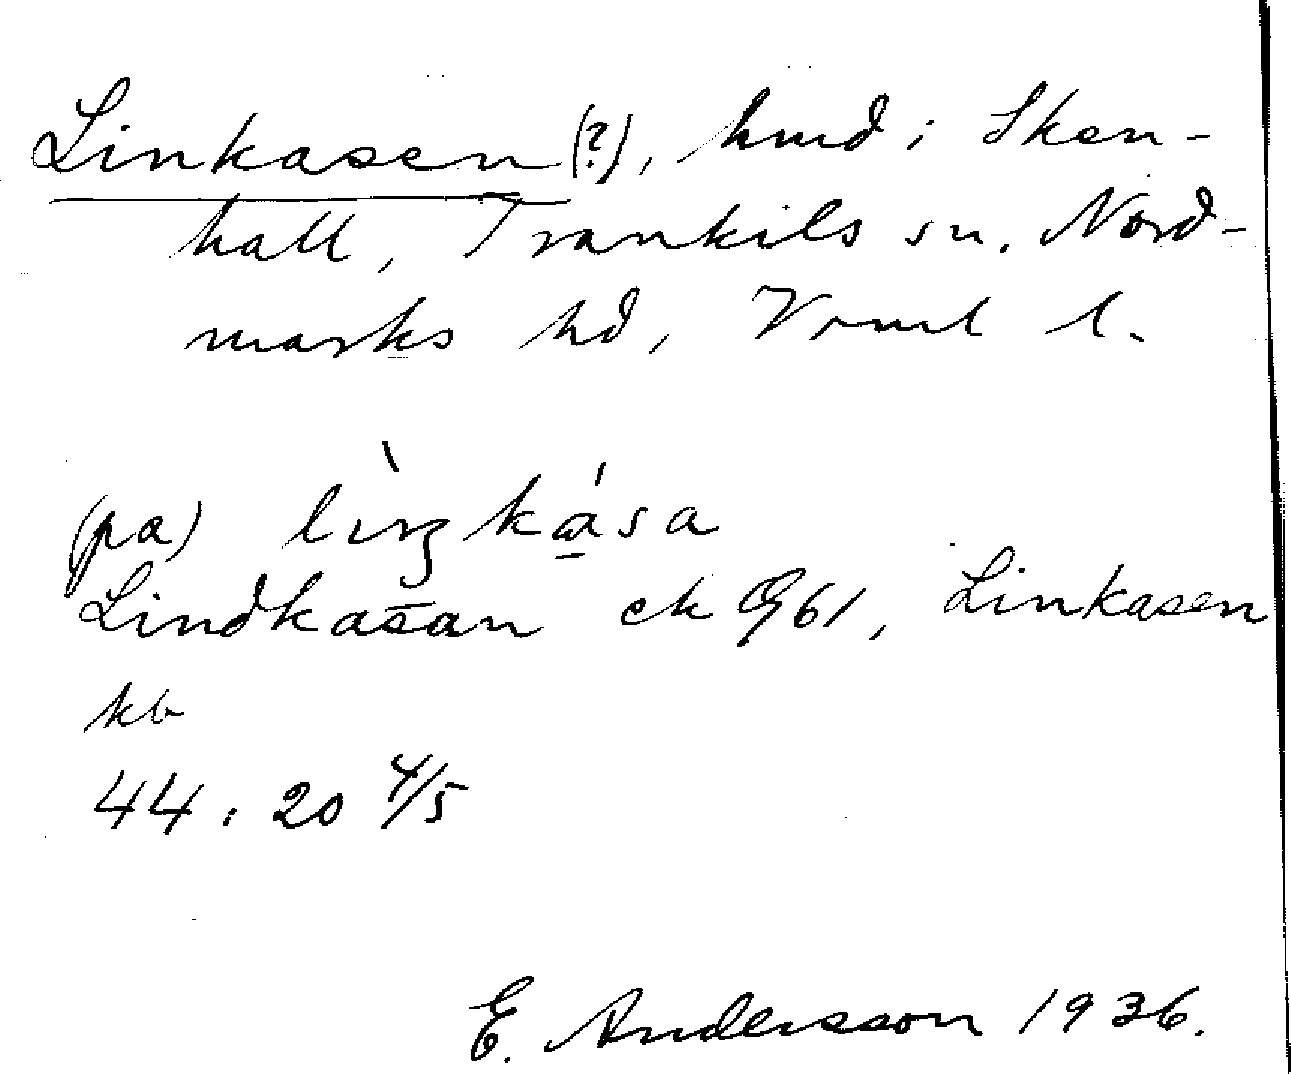 Linkasen (?), hmd i Sken-
hall, Trankils sn. Nord-
marks hd, Vrml l.
(pa) lìŋkása
Lindkasan ek 61, Linkasen
kb
44: 20 4/5
E. Andersson 1936.